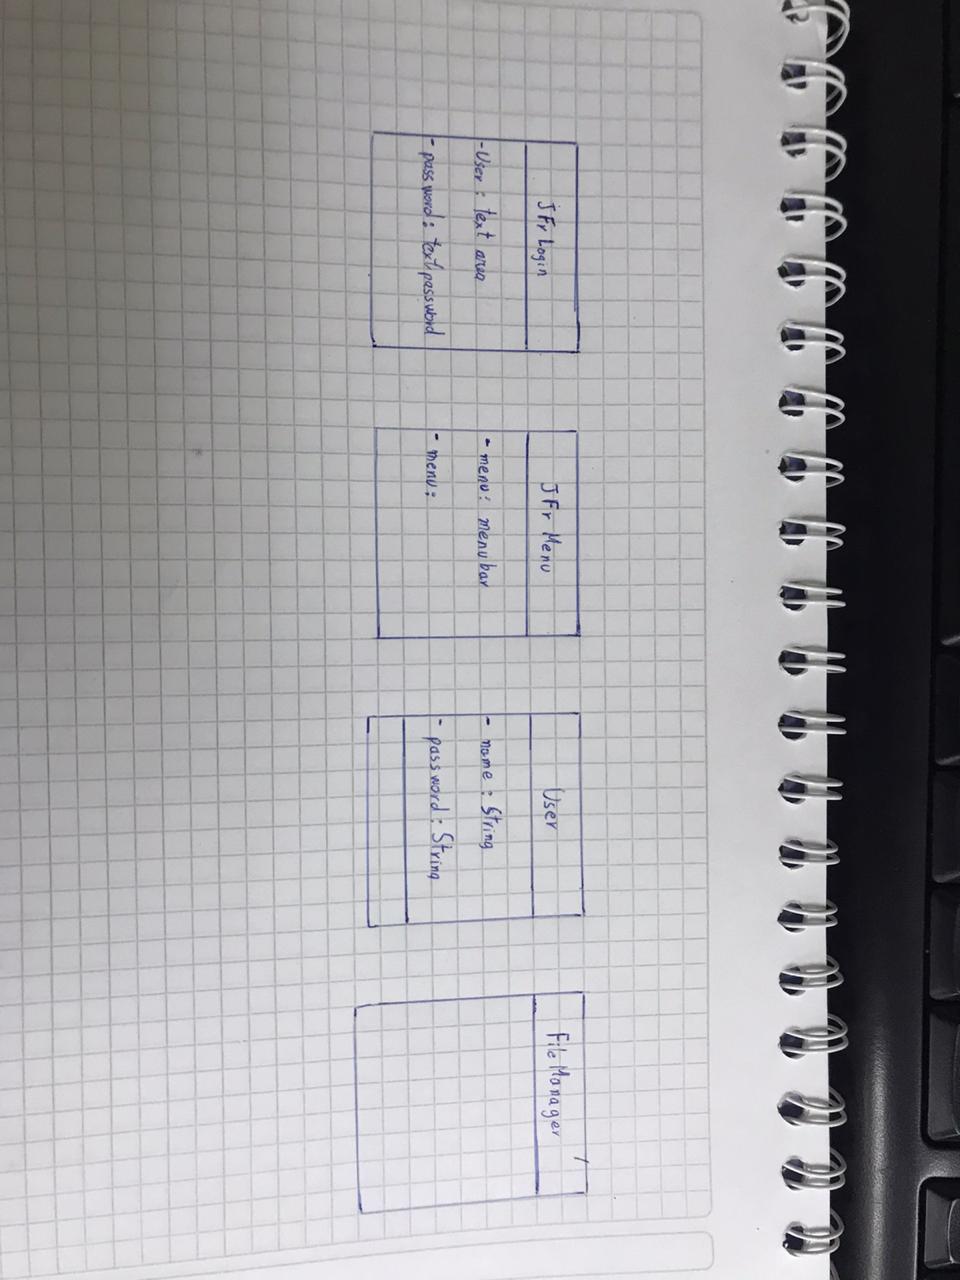 JFr Login
- User : text area
- password : text password
JFr Menu
- menu : menu bar
- menu :
User
- name : String
- password : String
File Manager